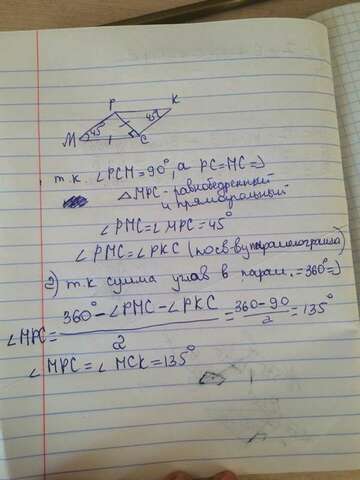 P
K
45°
M
45°
C
т.к. ∠PCM=90°, а PC=MC=>
△MPC - равнобедренный
и прямоугольный
∠PMC=∠MPC=45°
∠PMC=∠PKC (по св-ву параллелограмма)
2) т.к сумма углов в парал.=360°=>
∠MPC= (360°-∠PMC-∠PKC)/2 = (360-90)/2 = 135°
∠MPC=∠MCK=135°